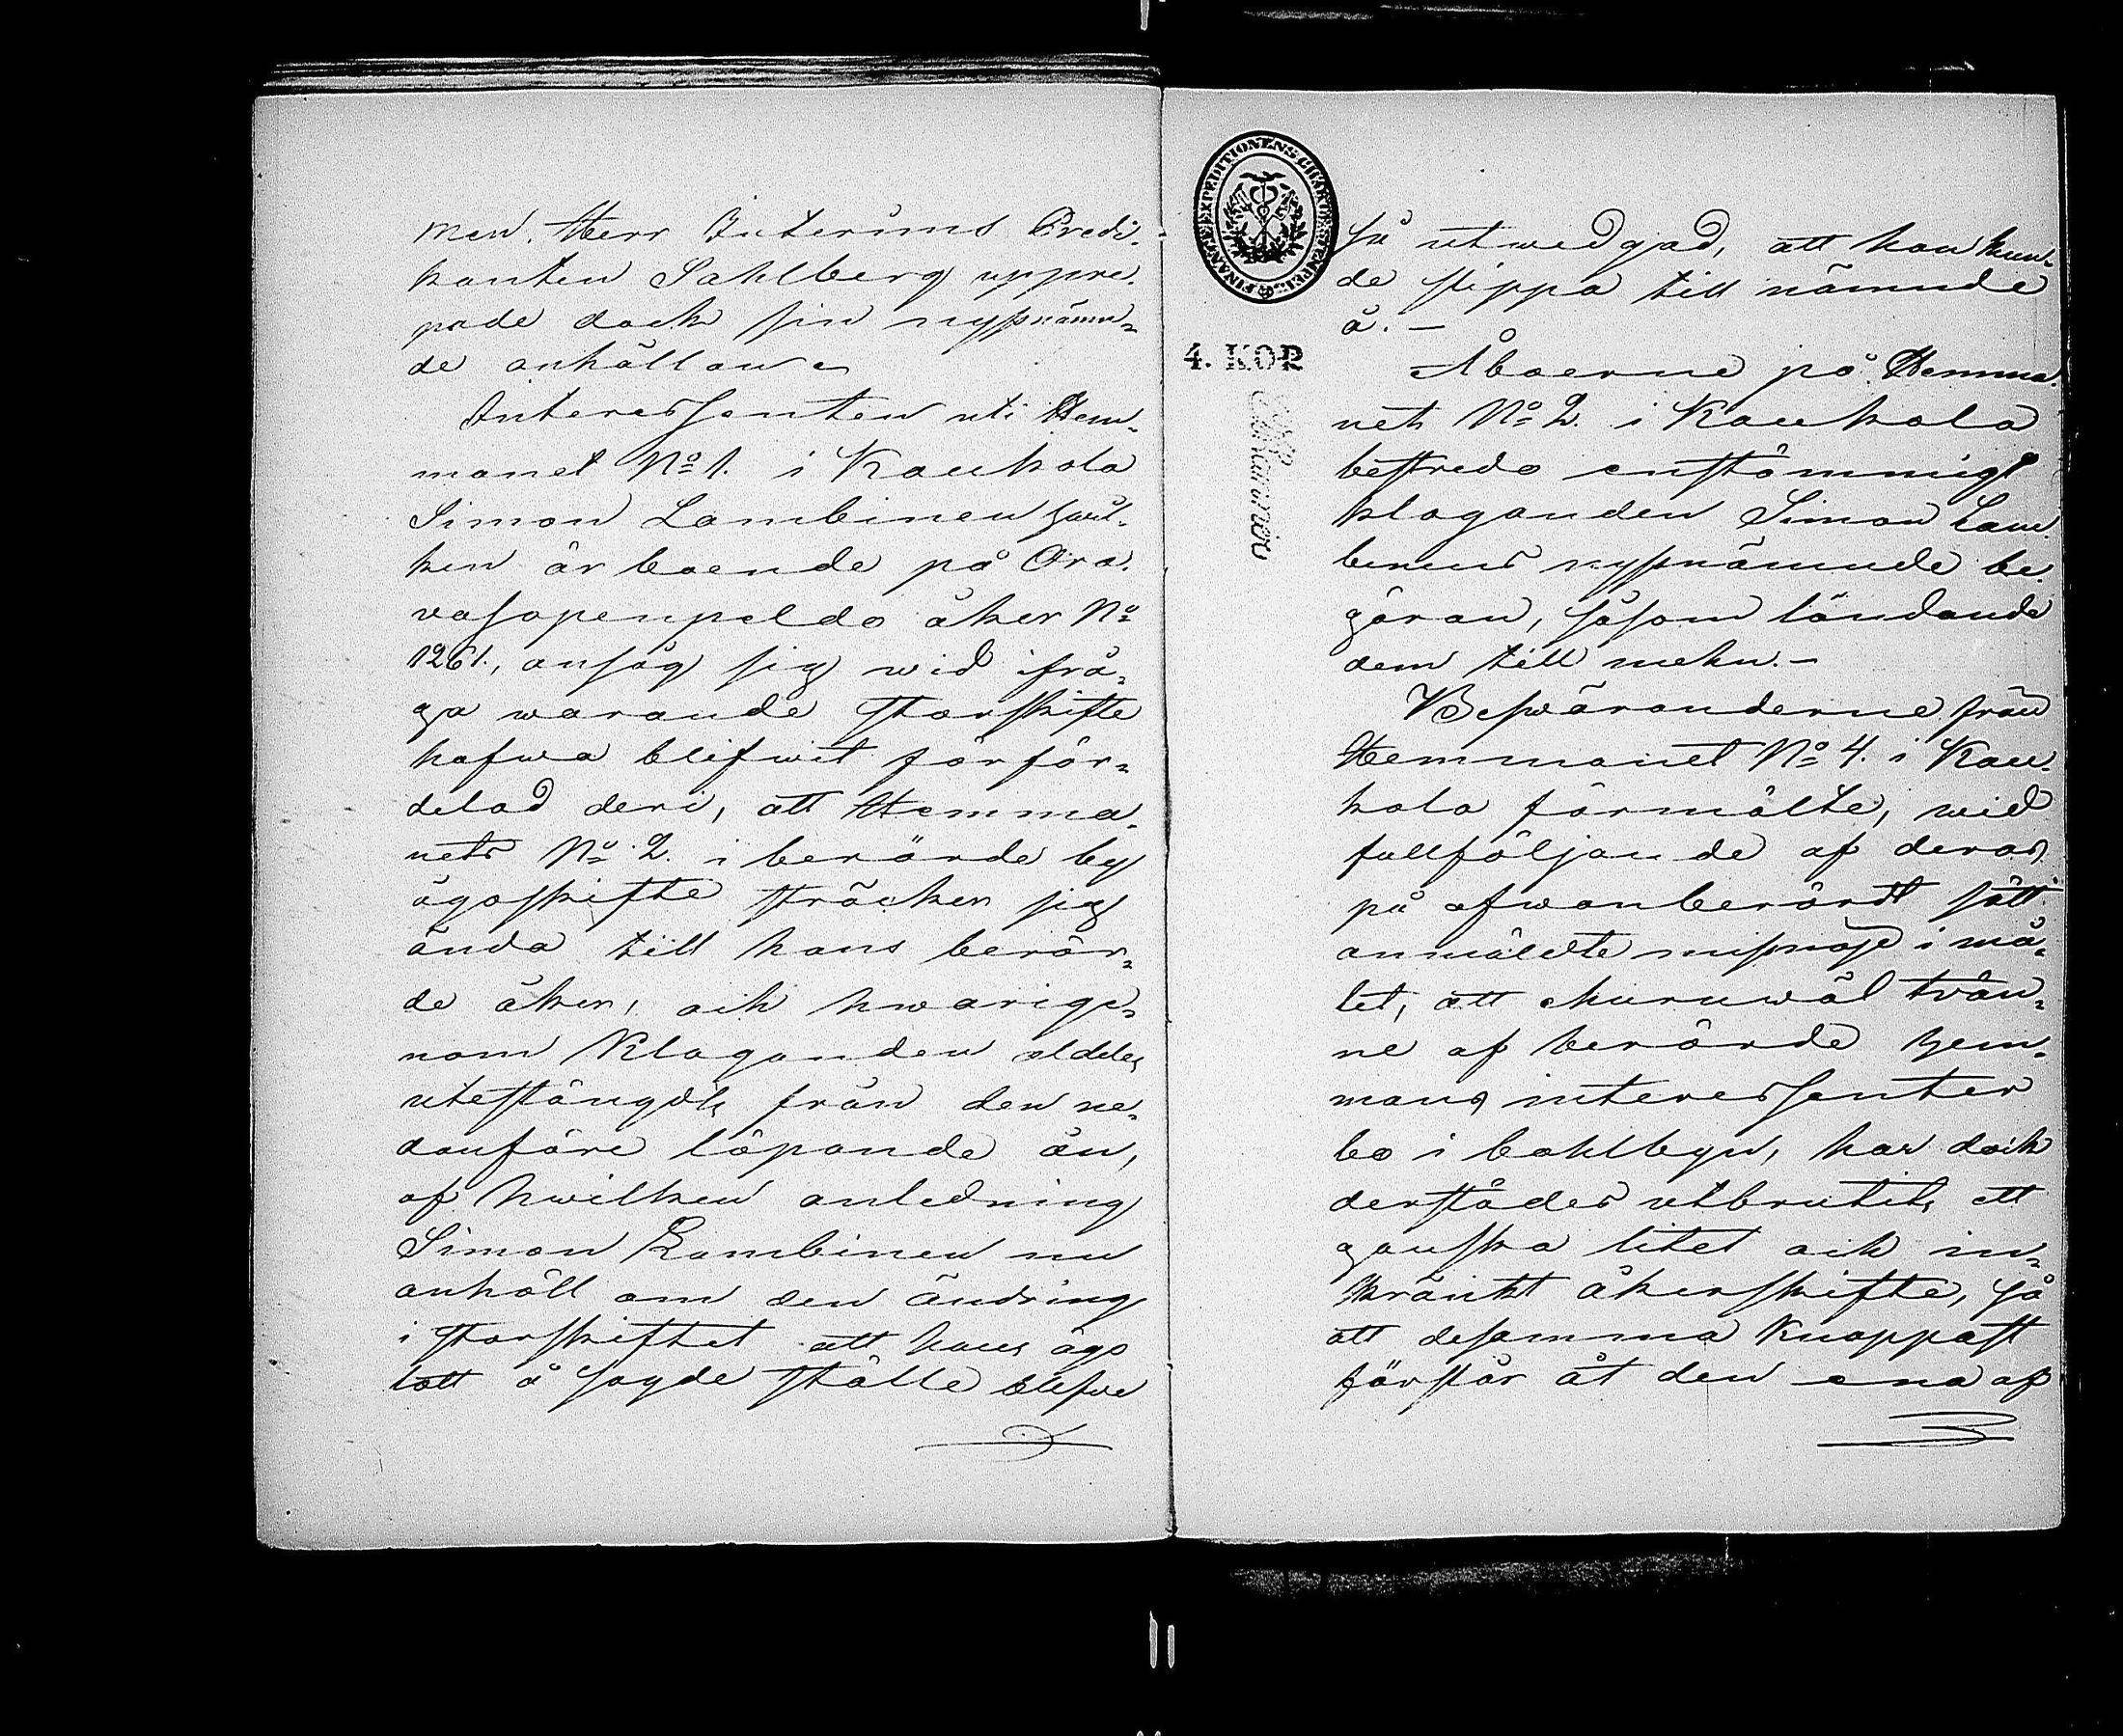 men. Herr Interims Predi-
kanten Sahlberg uppre-
pade dock sin nyssnämn-
de anhållan
Interessenten uti Hem-
manet No 1. i Kaukola
Simon Lambinen hvil-
ken är boende på Ora-
vasapenpeldo åker No
1261., ansåg sig wid ifrå-
ga warande storskifte
hafwa blifwit förför-
delad deri, att Hemma-
nets No 2. i berörde by
ägoskifte sträcker sig
ända till hans berör-
de åker, och hwarige-
nom Klaganden aldeles
utestängdts från den ne-
danföre löpande ån,
af hwilken anledning
Simon Lambinen nu
anhöll om den ändring
i storskiftet att hans ägo
lott å sagde ställe blefwe
FINANTS EXPEDITIONENS CHARTÆ STEMPEL
4. KOP
så utwedgad, att han kun-
de slippa till nämnde
å. -
Åboerne på Hemma-
net No 2. i Kaukola
bestredo enstämmigt
klaganden Simon Lam-
binens nyssnämnde be-
gäran, såsom ländande
dem till mehn. -
Beswäranderne från
Hemmanet No 4. i Kau-
kola förmälte, wid
fullföljande af deras
på ofwanberördt sätt
anmäldte missnöje i må-
let, att ehuruwäl twän-
ne af berörde hem-
mans interessenter
bo i bohlbyn, har dock
derstädes utbrutits ett
ganska litet och in-
skränkt åkerskifte, så
att desamma knappast
förslår åt den ena af